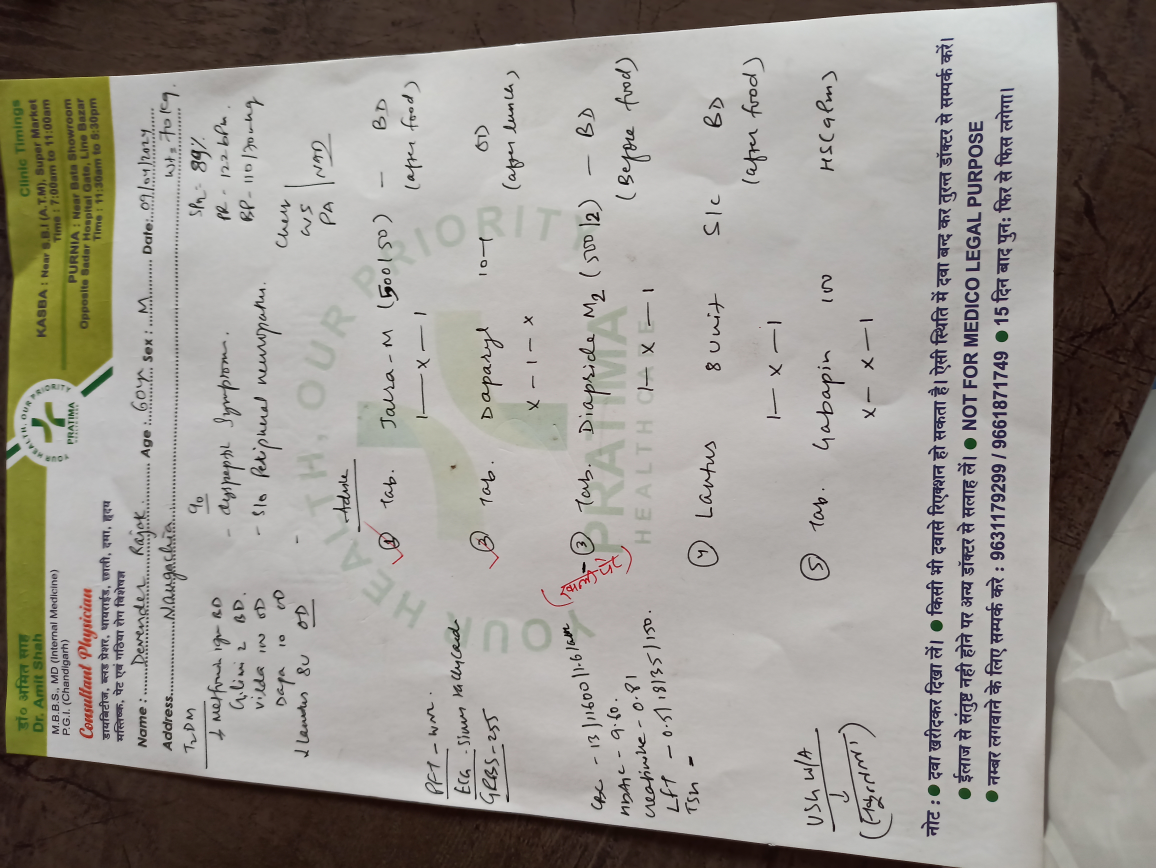 डॉ० अमित साह
Dr. Amit Shah
M.B.B.S., MD (Internal Medicine)
P.G.I. (Chandigarh)
Consultant Physician
डायबिटीज, ब्लड प्रेशर, थायराईड, छाती, दमा, हृदय
मस्तिष्क, पेट एवं गठिया रोग विशेषज्ञ
YOUR HEALTH, OUR PRIORITY
PRATIMA
Clinic Timings
KASBA : Near S.B.I (A.T.M), Super Market
Time : 7:00am to 11:00am
PURNIA : Near Bata Showroom
Opposite Sadar Hospital Gate, Line Bazar
Time : 11:30am to 5:30pm
Name : Devender Rajak Age : 60yr Sex : M Date: 09/04/2024
Address Naugachia Wt = 70 kg.
T2DM
Metformin 1gm BD
Glimi 2 BD.
Vilda 100 OD
Dapa 10 OD
Lantus 8U OD
c/o
- dyspeptic symptoms.
- S/o Peripheral neuropathy.
-
89%
PR - 122 bpm.
BP - 110/70 mmHg
Chest
CVS
PA NAD
PFT - WNL
ECG - Sinus tachycardia
GRBS - 255
CBC - 13/11600/1.6 lakh
HbA1c - 9.60.
Creatinine - 0.81
LFT - 0.5/18/35/150.
TSH -
USG W/A
Advice
① Tab. Jalra-M (500/50) - BD
1 — x — 1 (after food)
② Tab. Daparyl 10-1 OD
x - 1 - x (after lunch)
③ Tab. Diapride M2 (500/2) - BD
(खाली पेट) 1 - x - 1 (Before food)
④ Lantus 8 Unit S/C BD
1 - x - 1 (after food)
⑤ Tab. Gabapin 100 HS (9pm)
x - x - 1
YOUR HEALTH, OUR PRIORITY
PRATIMA
HEALTH CARE
नोट : ● दवा खरीदकर दिखा लें। ● किसी भी दवासे रिएक्शन हो सकता है। ऐसी स्थिति में दवा बन्द कर तुरन्त डॉक्टर से सम्पर्क करें।
● ईलाज से संतुष्ट नही होने पर अन्य डॉक्टर से सलाह लें। ● NOT FOR MEDICO LEGAL PURPOSE
● नम्बर लगवाने के लिए सम्पर्क करे : 9631179299 / 9661871749 ● 15 दिन बाद पुनः फिर से फिस लगेगा।